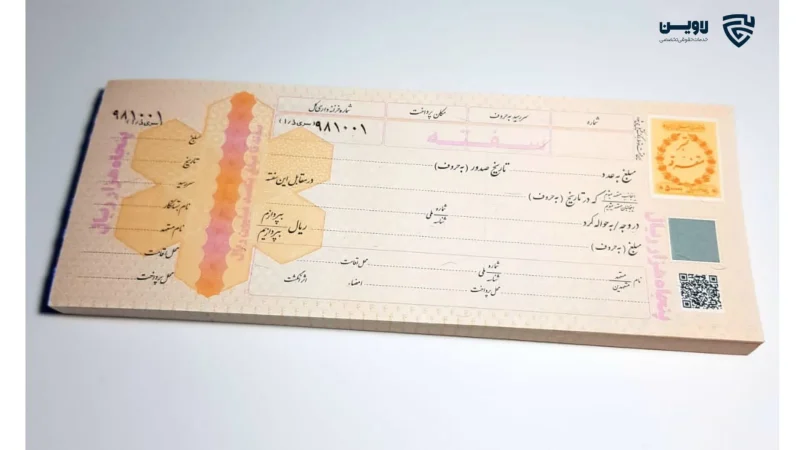 لاوین
خدمات حقوقی تخصصی
شماره
سررسید به حروف
مکان پرداخت
شماره خزانه داری کل
سفته
۹۸۱۰۰۱
(سری ف/۱)
مبلغ به عدد
تاریخ صدور (به حروف)
در مقابل این سفته
که در تاریخ (به حروف)
در وجه / به حواله کرد
شماره ملی
شناسه
بپردازم
بپردازیم
ریال
مبلغ (به حروف)
نام
متعهد
متعهدین
شماره ملی
شناسه
محل اقامت
محل پرداخت
امضاء
اثر انگشت
پنجاه هزار ریال
تمبر
سفته
۹۸۱۰۰۱
(سری ف/۱)
مبلغ
تاریخ
سررسید
نام بستانکار
نام متعهد
محل اقامت
محل پرداخت
پنجاه هزار ریال